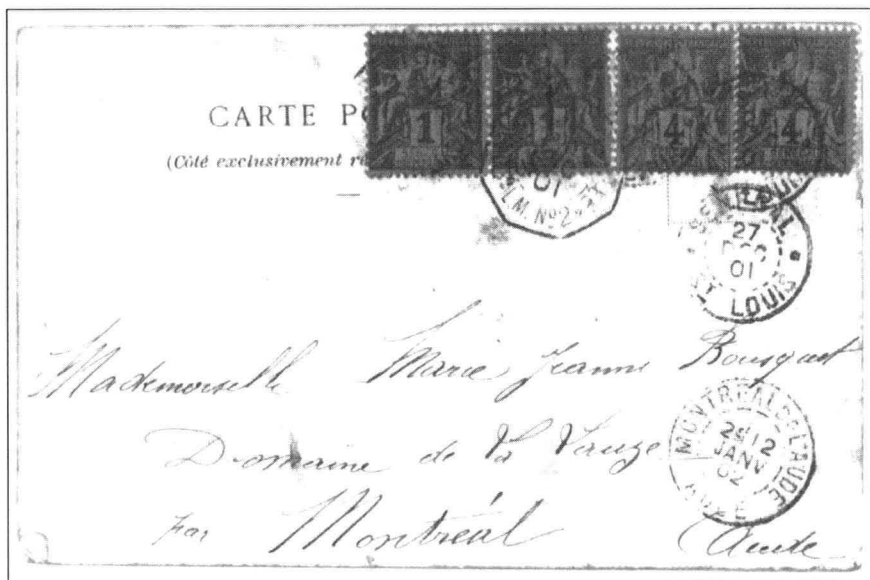 1 1 4 4
CARTE PO
(Côté exclusivement ré
01
LM. Nº2
LOUIS
SENEGAL
27
DEC
01
ST LOUIS
Mademoiselle Marie Jeanne Bousquet
Domaine de La
par Montréal Aude
MONTREAL DE L'AUDE
JANV
02
AUDE